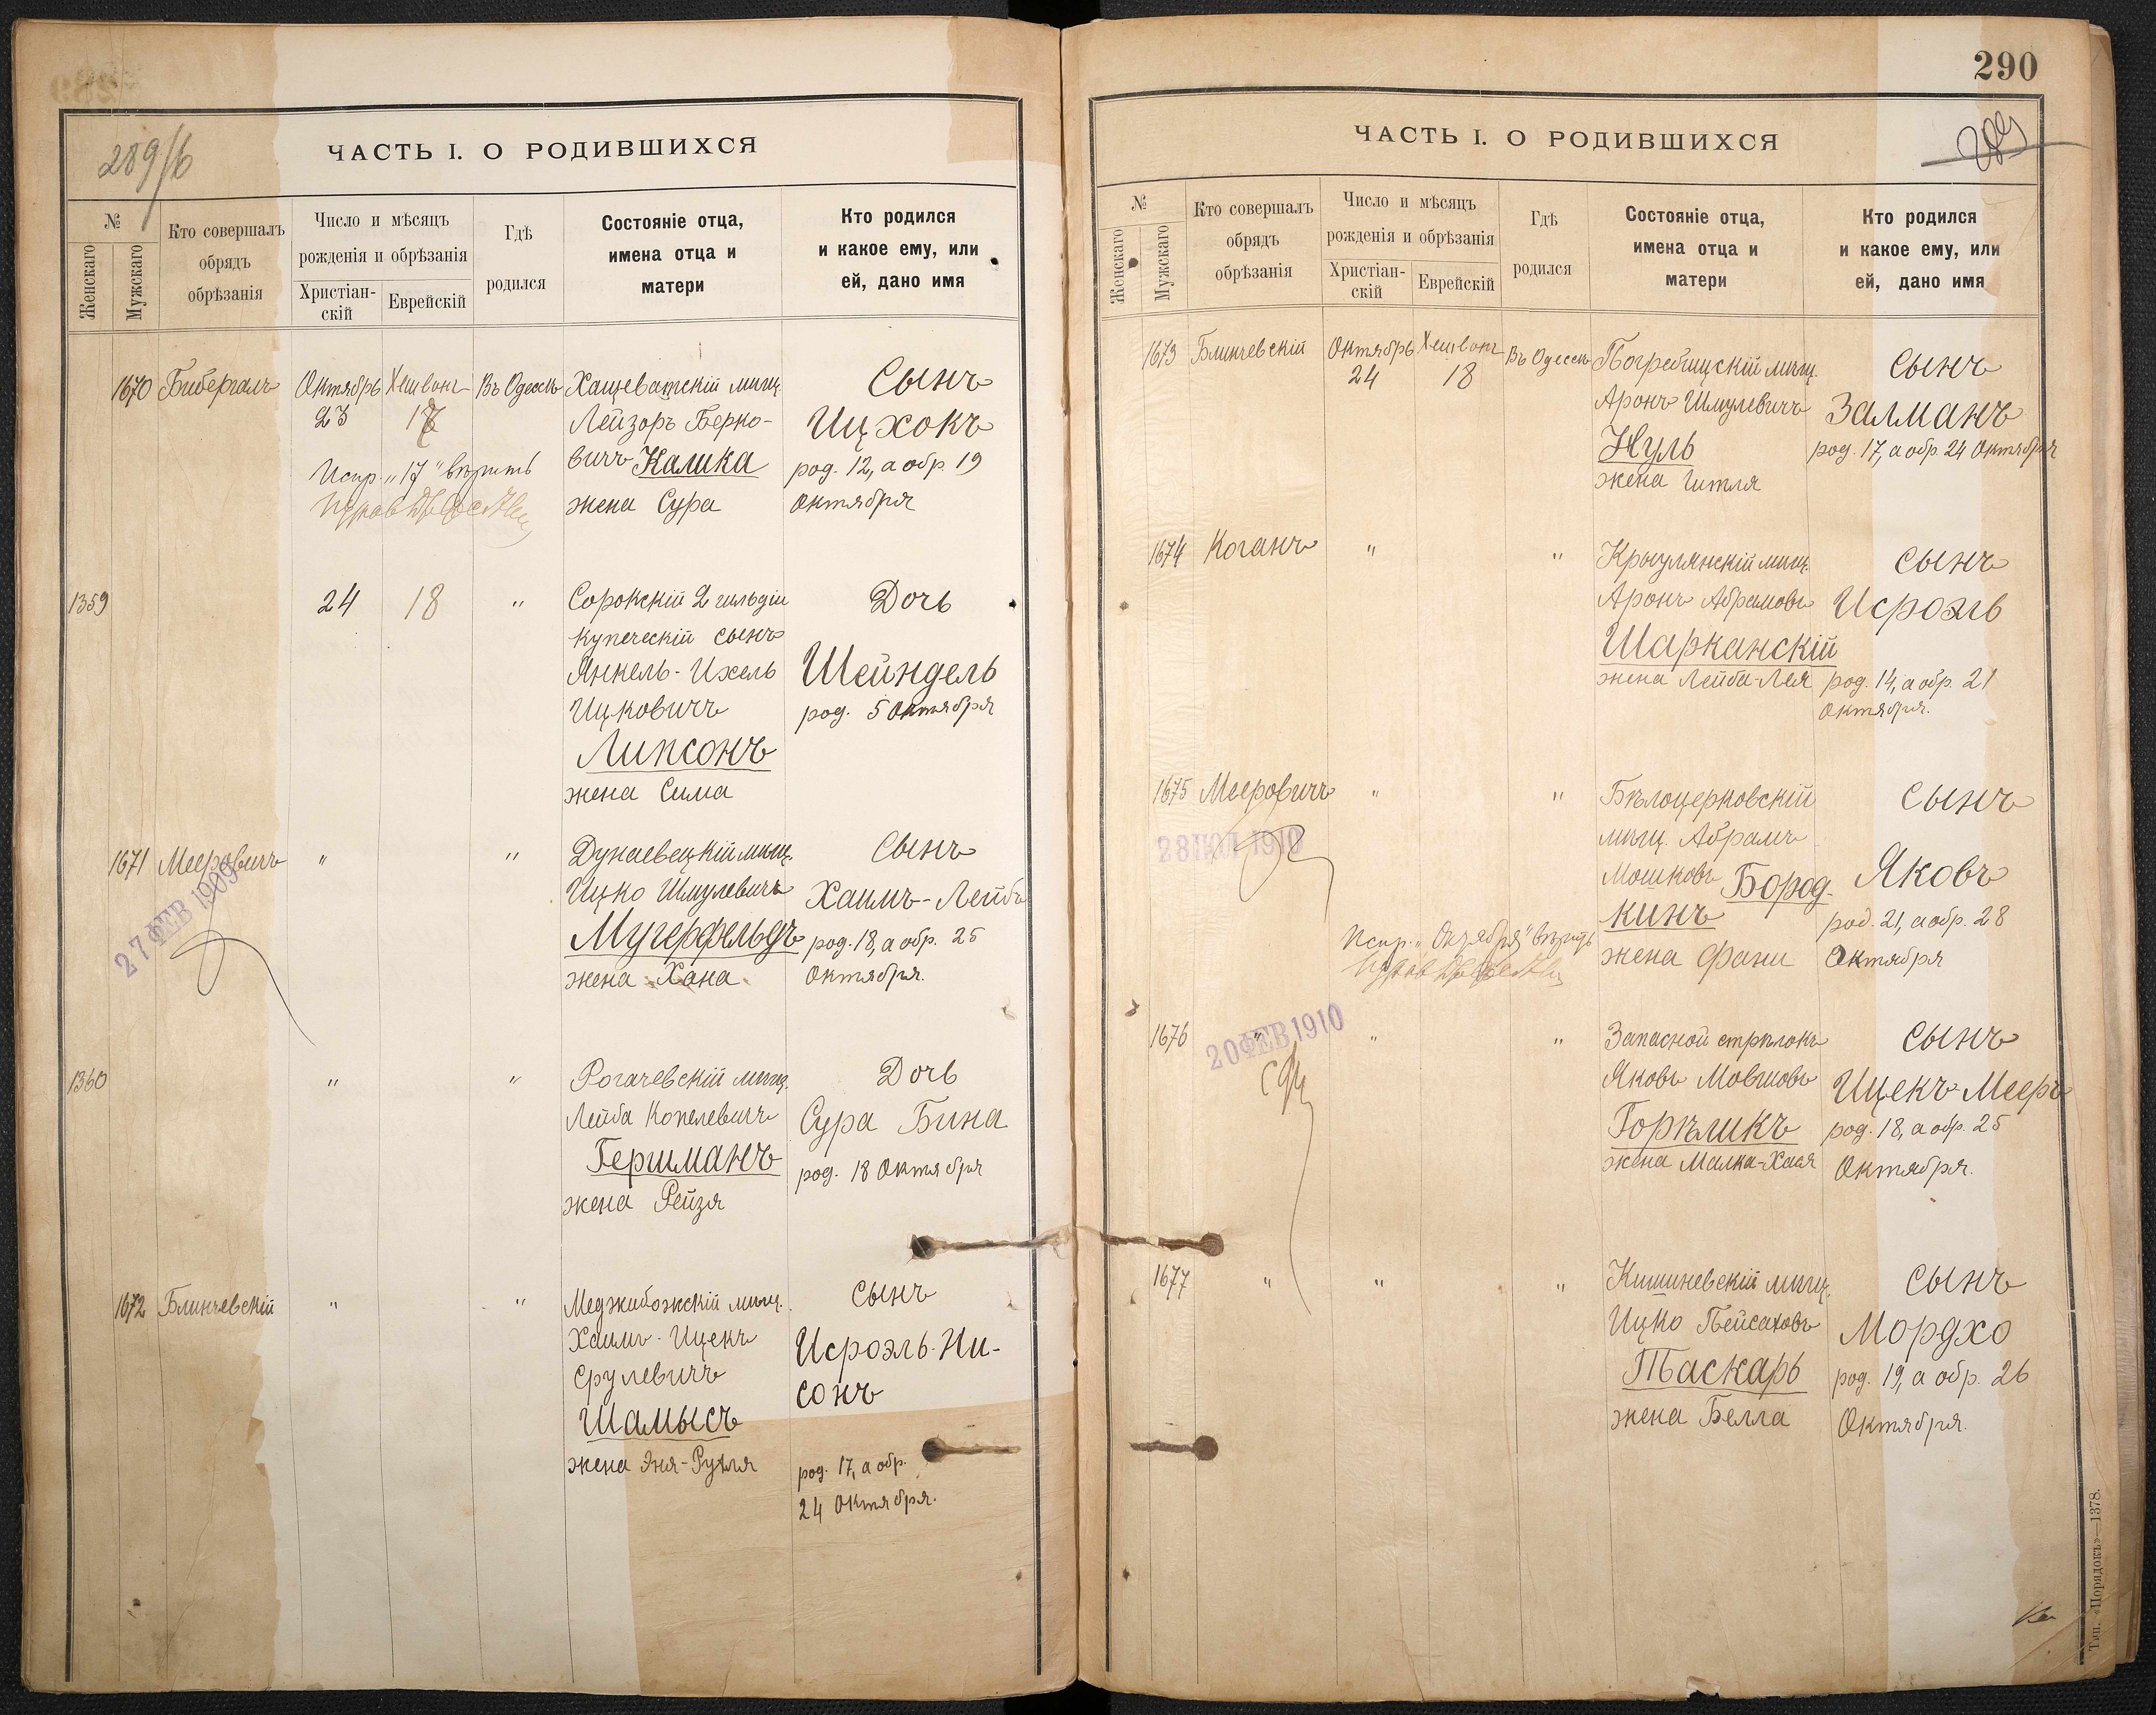 289/б
ЧАСТЬ I. О РОДИВШИХСЯ
№
Женскаго
Мужскаго
Кто совершалъ
обрядъ
обрѣзанія
Число и мѣсяцъ
рожденія и обрѣзанія
Христіан-
скій
Еврейскій
Гдѣ
родился
Состояніе отца,
имена отца и
матери
Кто родился
и какое ему, или
ей, дано имя
1670 Бибергалъ Октябрь Хешванъ Въ Одессѣ Хащеватскій мѣщ. Сынъ
23 17 Лейзоръ Берко- Ицхокъ
вичъ Калика род. 12, а обр. 19
Испр. „17" вѣрить
жена Сура Октября
1359 24 18 " Сорокскій 2 гильдіи Дочь
купеческій сынъ
Янкель-Ихель Шейндель
Ицковичъ род. 5 Октября
Липсонъ
жена Сима
1671 Мееровичъ " " Дунаевецкій мѣщ. Сынъ
27 ФЕВ 1909
Ицко Шмулевичъ Хаимъ-Лейбъ
Мугерфельдъ род. 18, а обр. 25
жена Хана Октября.
1360 " " Рогачевскій мѣщ. Дочь
Лейба Копелевичъ Сура Бина
Гершманъ род. 18 Октября
жена Рейзя
1672 Блинчевскій " " Меджибожскій мѣщ. Сынъ
Хаимъ-Ицекъ Исроэль-Ни-
Срулевичъ сонъ
Шамысъ
жена Эня-Рухля род. 17, а обр.
24 Октября.
290
289
ЧАСТЬ I. О РОДИВШИХСЯ
№
Женскаго
Мужскаго
Кто совершалъ
обрядъ
обрѣзанія
Число и мѣсяцъ
рожденія и обрѣзанія
Христіан-
скій
Еврейскій
Гдѣ
родился
Состояніе отца,
имена отца и
матери
Кто родился
и какое ему, или
ей, дано имя
1673 Блинчевскій Октябрь Хешванъ Въ Одессѣ Погребищскій мѣщ. Сынъ
24 18 Аронъ Шмулевичъ Залманъ
Нуль род. 17, а обр. 24 Октября
жена Гитля
1674 Коганъ " " Криулянскій мѣщ. Сынъ
Аронъ Абрамовъ Исроэль
Шарканскій
жена Лейба-Лея род. 14, а обр. 21
Октября.
1675 Мееровичъ " " Бѣлоцерковскій Сынъ
28 ІЮЛ 1910
мѣщ. Абрамъ
Мошковъ Бород- Яковъ
кинъ род. 21, а обр. 28
Испр. „Октября" вѣрить
жена Фани Октября
1676 " " " Запасной стрѣлокъ Сынъ
20 ФЕВ 1910
Яковъ Мовшовъ Ицекъ Мееръ
Горѣликъ род. 18, а обр. 25
жена Малка-Хася Октября.
1677 " " " Кишиневскій мѣщ. Сынъ
Ицко Пейсаховъ Мордхо
Таскарь род. 19, а обр. 26
жена Белла Октября.
Тип. «Порядокъ»—1378.